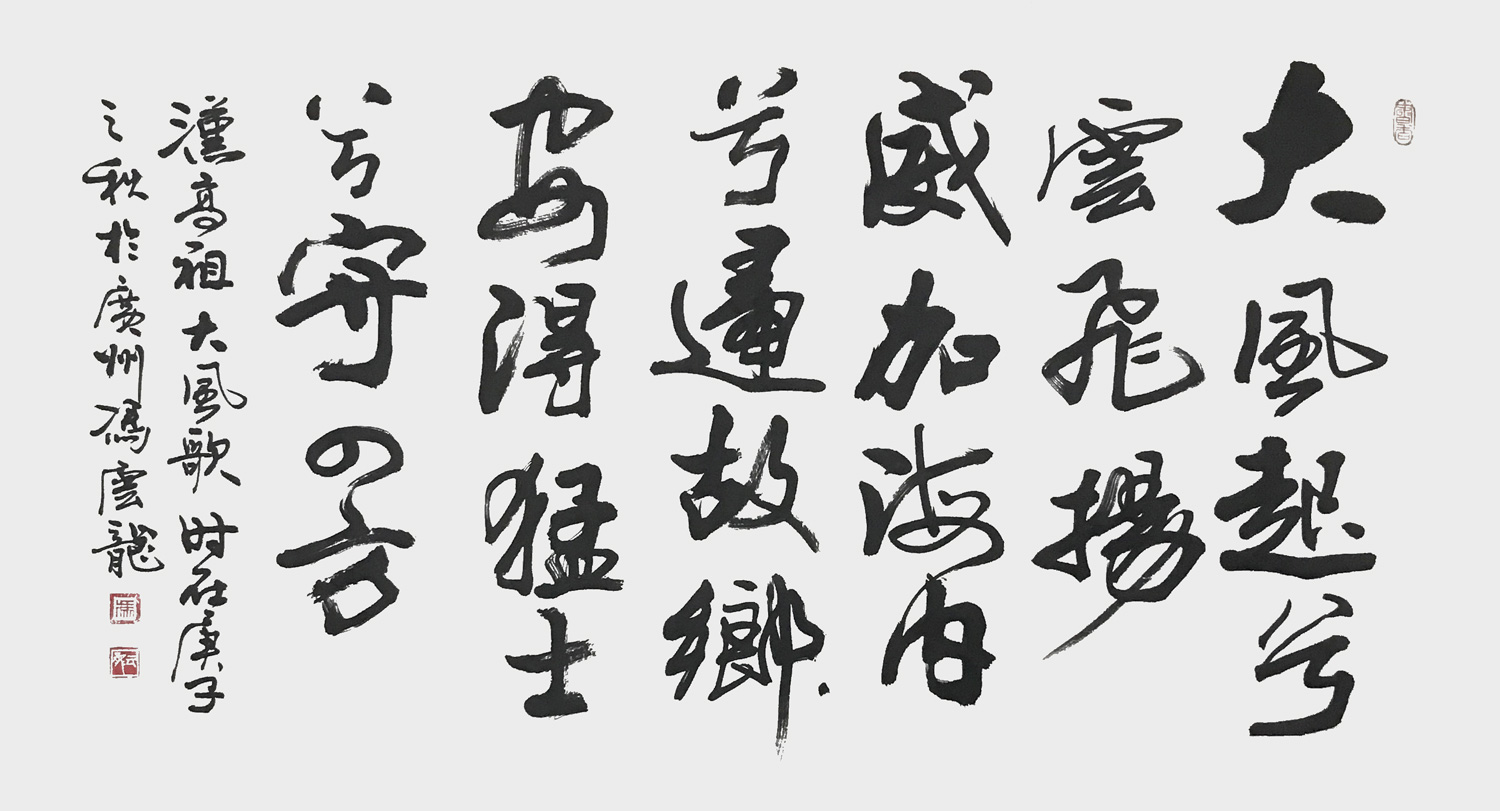 大風起兮
雲飛揚
威加海内
兮歸故鄉
安得猛士
兮守四方
漢高祖大風歌时在庚子
之秋於廣州馮雲龍